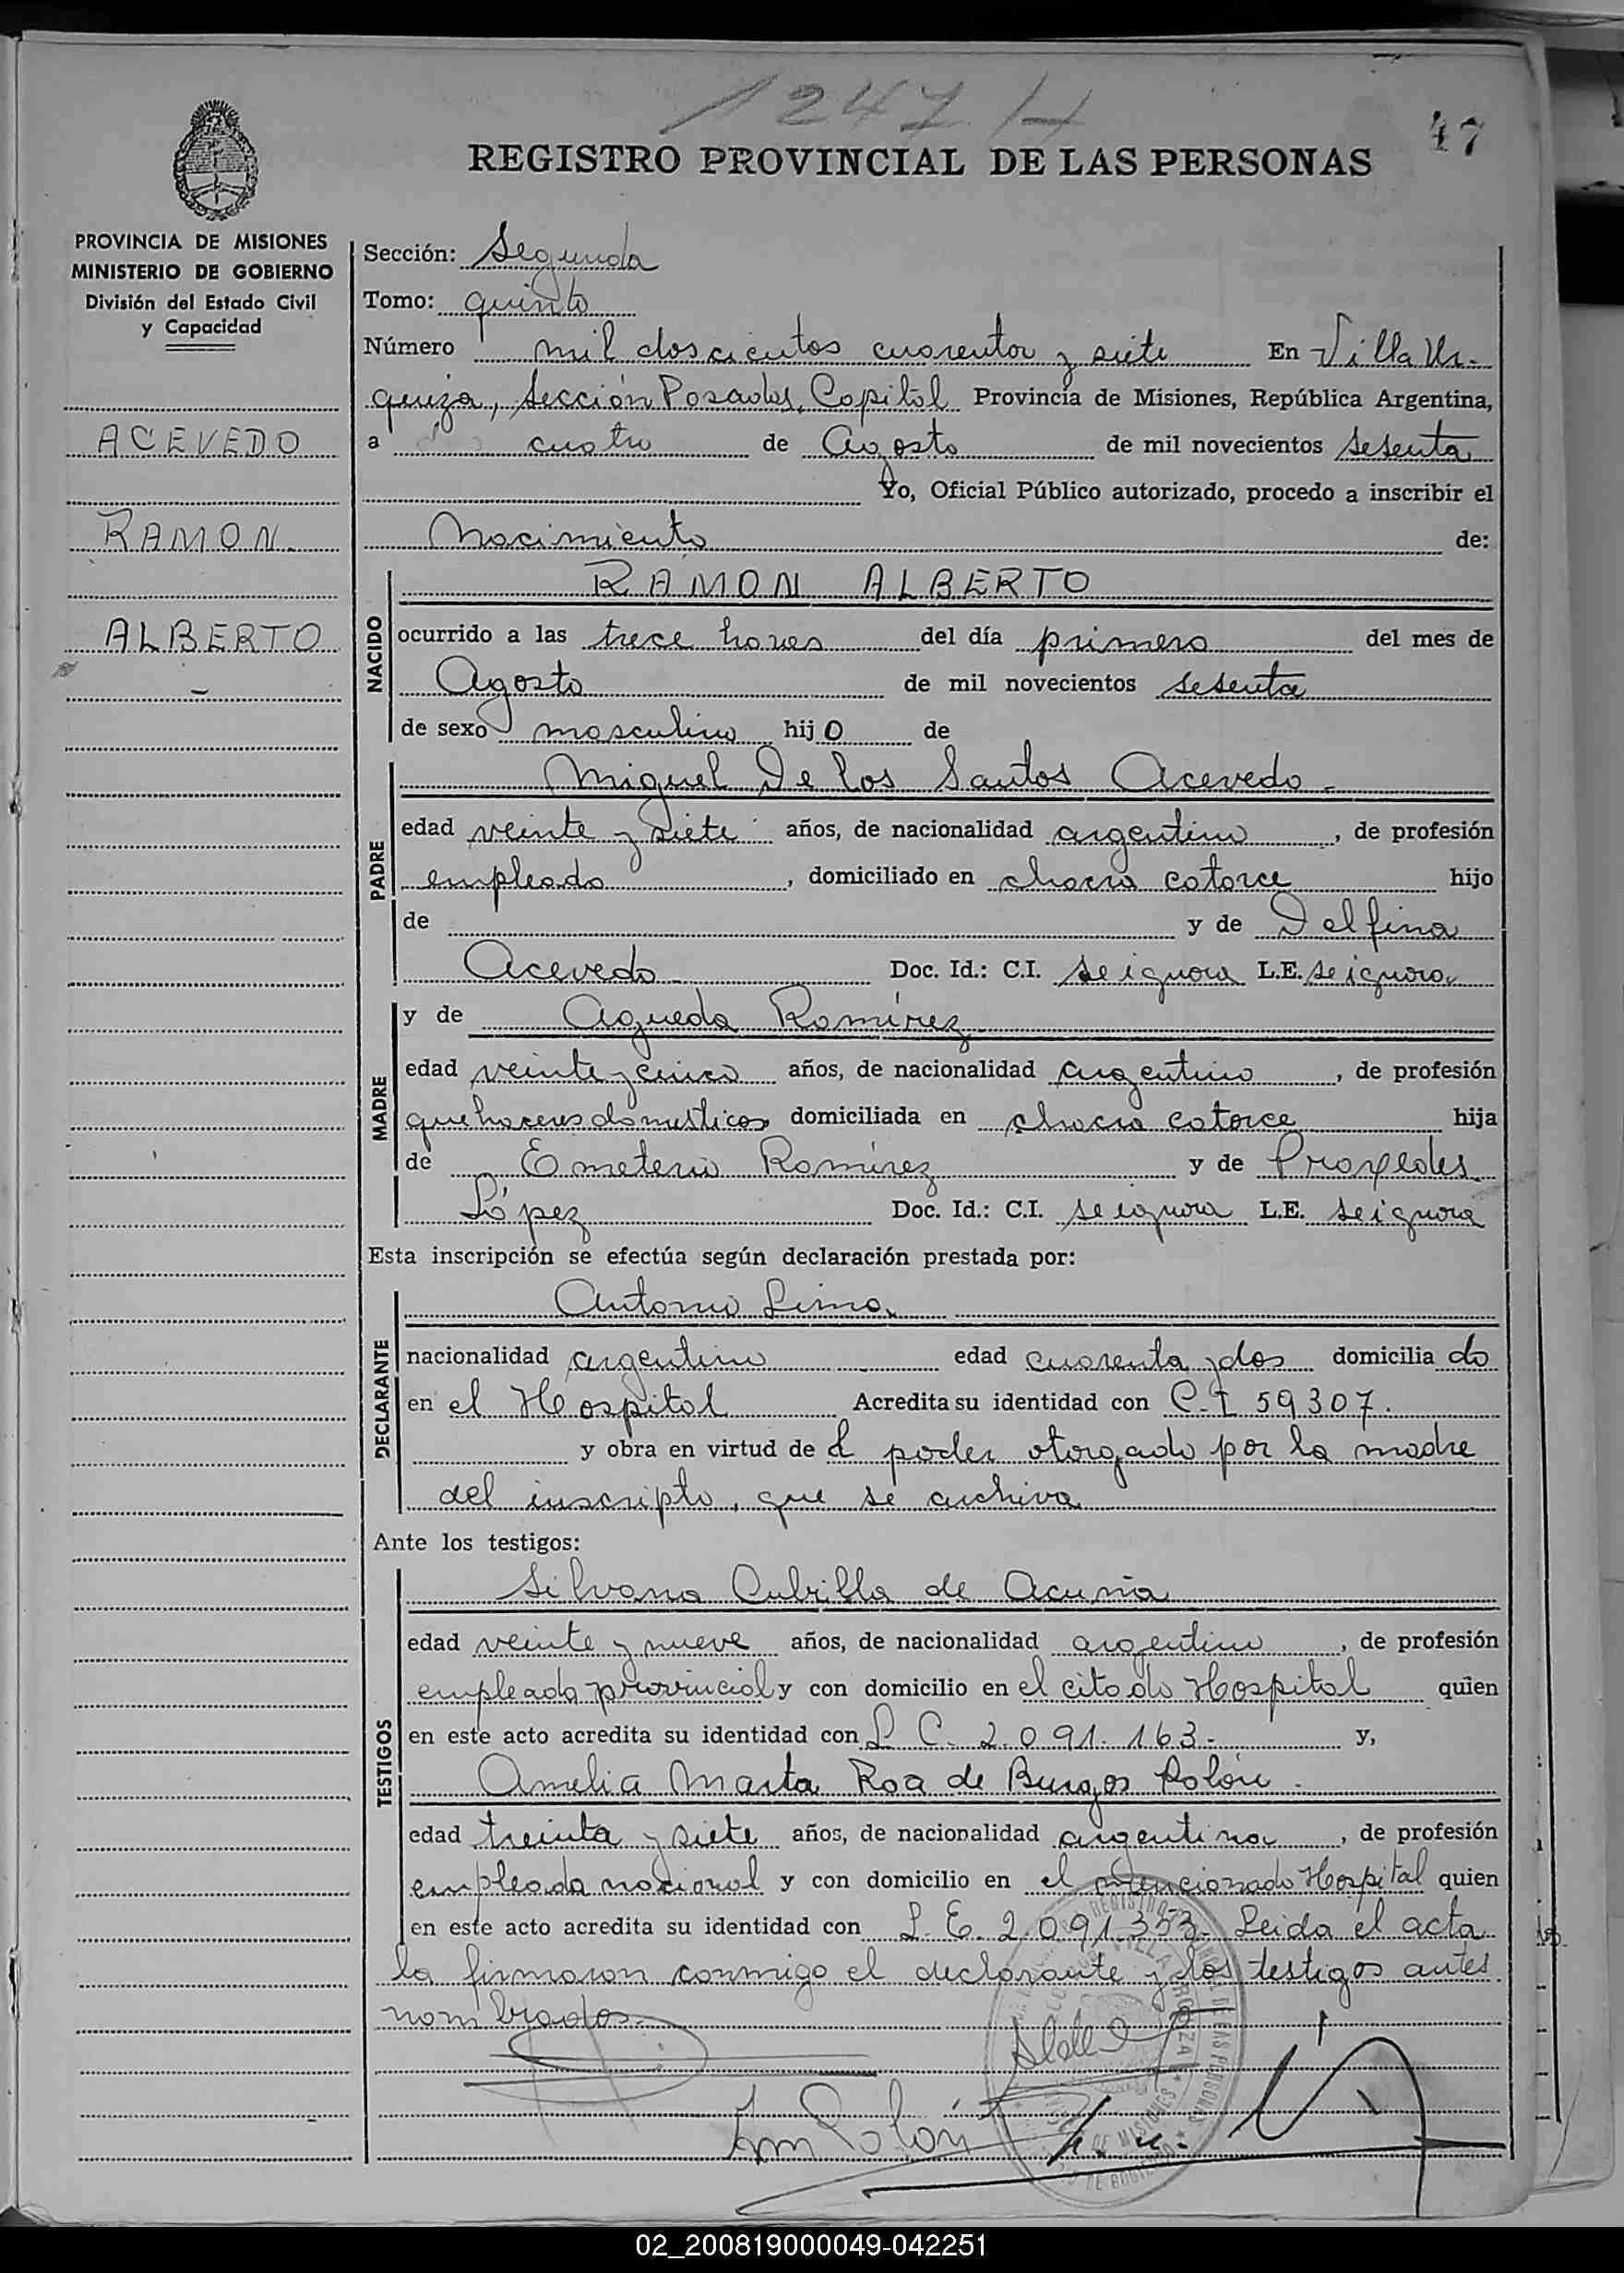 1247 H
47
REGISTRO PROVINCIAL DE LAS PERSONAS
PROVINCIA DE MISIONES
MINISTERIO DE GOBIERNO
División del Estado Civil
y Capacidad
ACEVEDO
RAMON
ALBERTO
Sección: Segunda
Tomo: quinto
Número mil doscientos cuarenta y siete En Villa Ur-
quiza, Sección Posadas, Capital Provincia de Misiones, República Argentina,
a cuatro de Agosto de mil novecientos sesenta
Yo, Oficial Público autorizado, procedo a inscribir el
Nacimiento de:
NACIDO
RAMON ALBERTO
ocurrido a las trece horas del día primero del mes de
Agosto de mil novecientos sesenta
de sexo masculino hijo de
PADRE
Miguel De los Santos Acevedo -
edad veinte y siete años, de nacionalidad argentino, de profesión
empleado, domiciliado en chacra catorce hijo
de y de Delfina
Acevedo Doc. Id.: C.I. se ignora L.E. se ignora
MADRE
y de Agueda Ramírez
edad veinte y cinco años, de nacionalidad argentina, de profesión
quehaceres domesticos domiciliada en chacra catorce hija
de Emeterio Ramírez y de Praxedes
López Doc. Id.: C.I. se ignora L.E. se ignora
Esta inscripción se efectúa según declaración prestada por:
DECLARANTE
Antonio Lima
nacionalidad argentino edad cuarenta y dos domiciliado
en el Hospital Acredita su identidad con C.I 59307.
y obra en virtud del poder otorgado por la madre
del inscripto, que se archiva
Ante los testigos:
TESTIGOS
Silvana Cubilla de Acuña
edad veinte y nueve años, de nacionalidad argentina, de profesión
empleada provincial y con domicilio en el citado Hospital quien
en este acto acredita su identidad con L C. 2.091.163.- y,
Amelia Marta Roa de Burgos Polón.
edad treinta y siete años, de nacionalidad argentina, de profesión
empleada nacional y con domicilio en el mencionado Hospital quien
en este acto acredita su identidad con L.E. 2.091.353. Leida el acta
la firmaron conmigo el declarante y los testigos antes
nombrados.
02_200819000049-042251